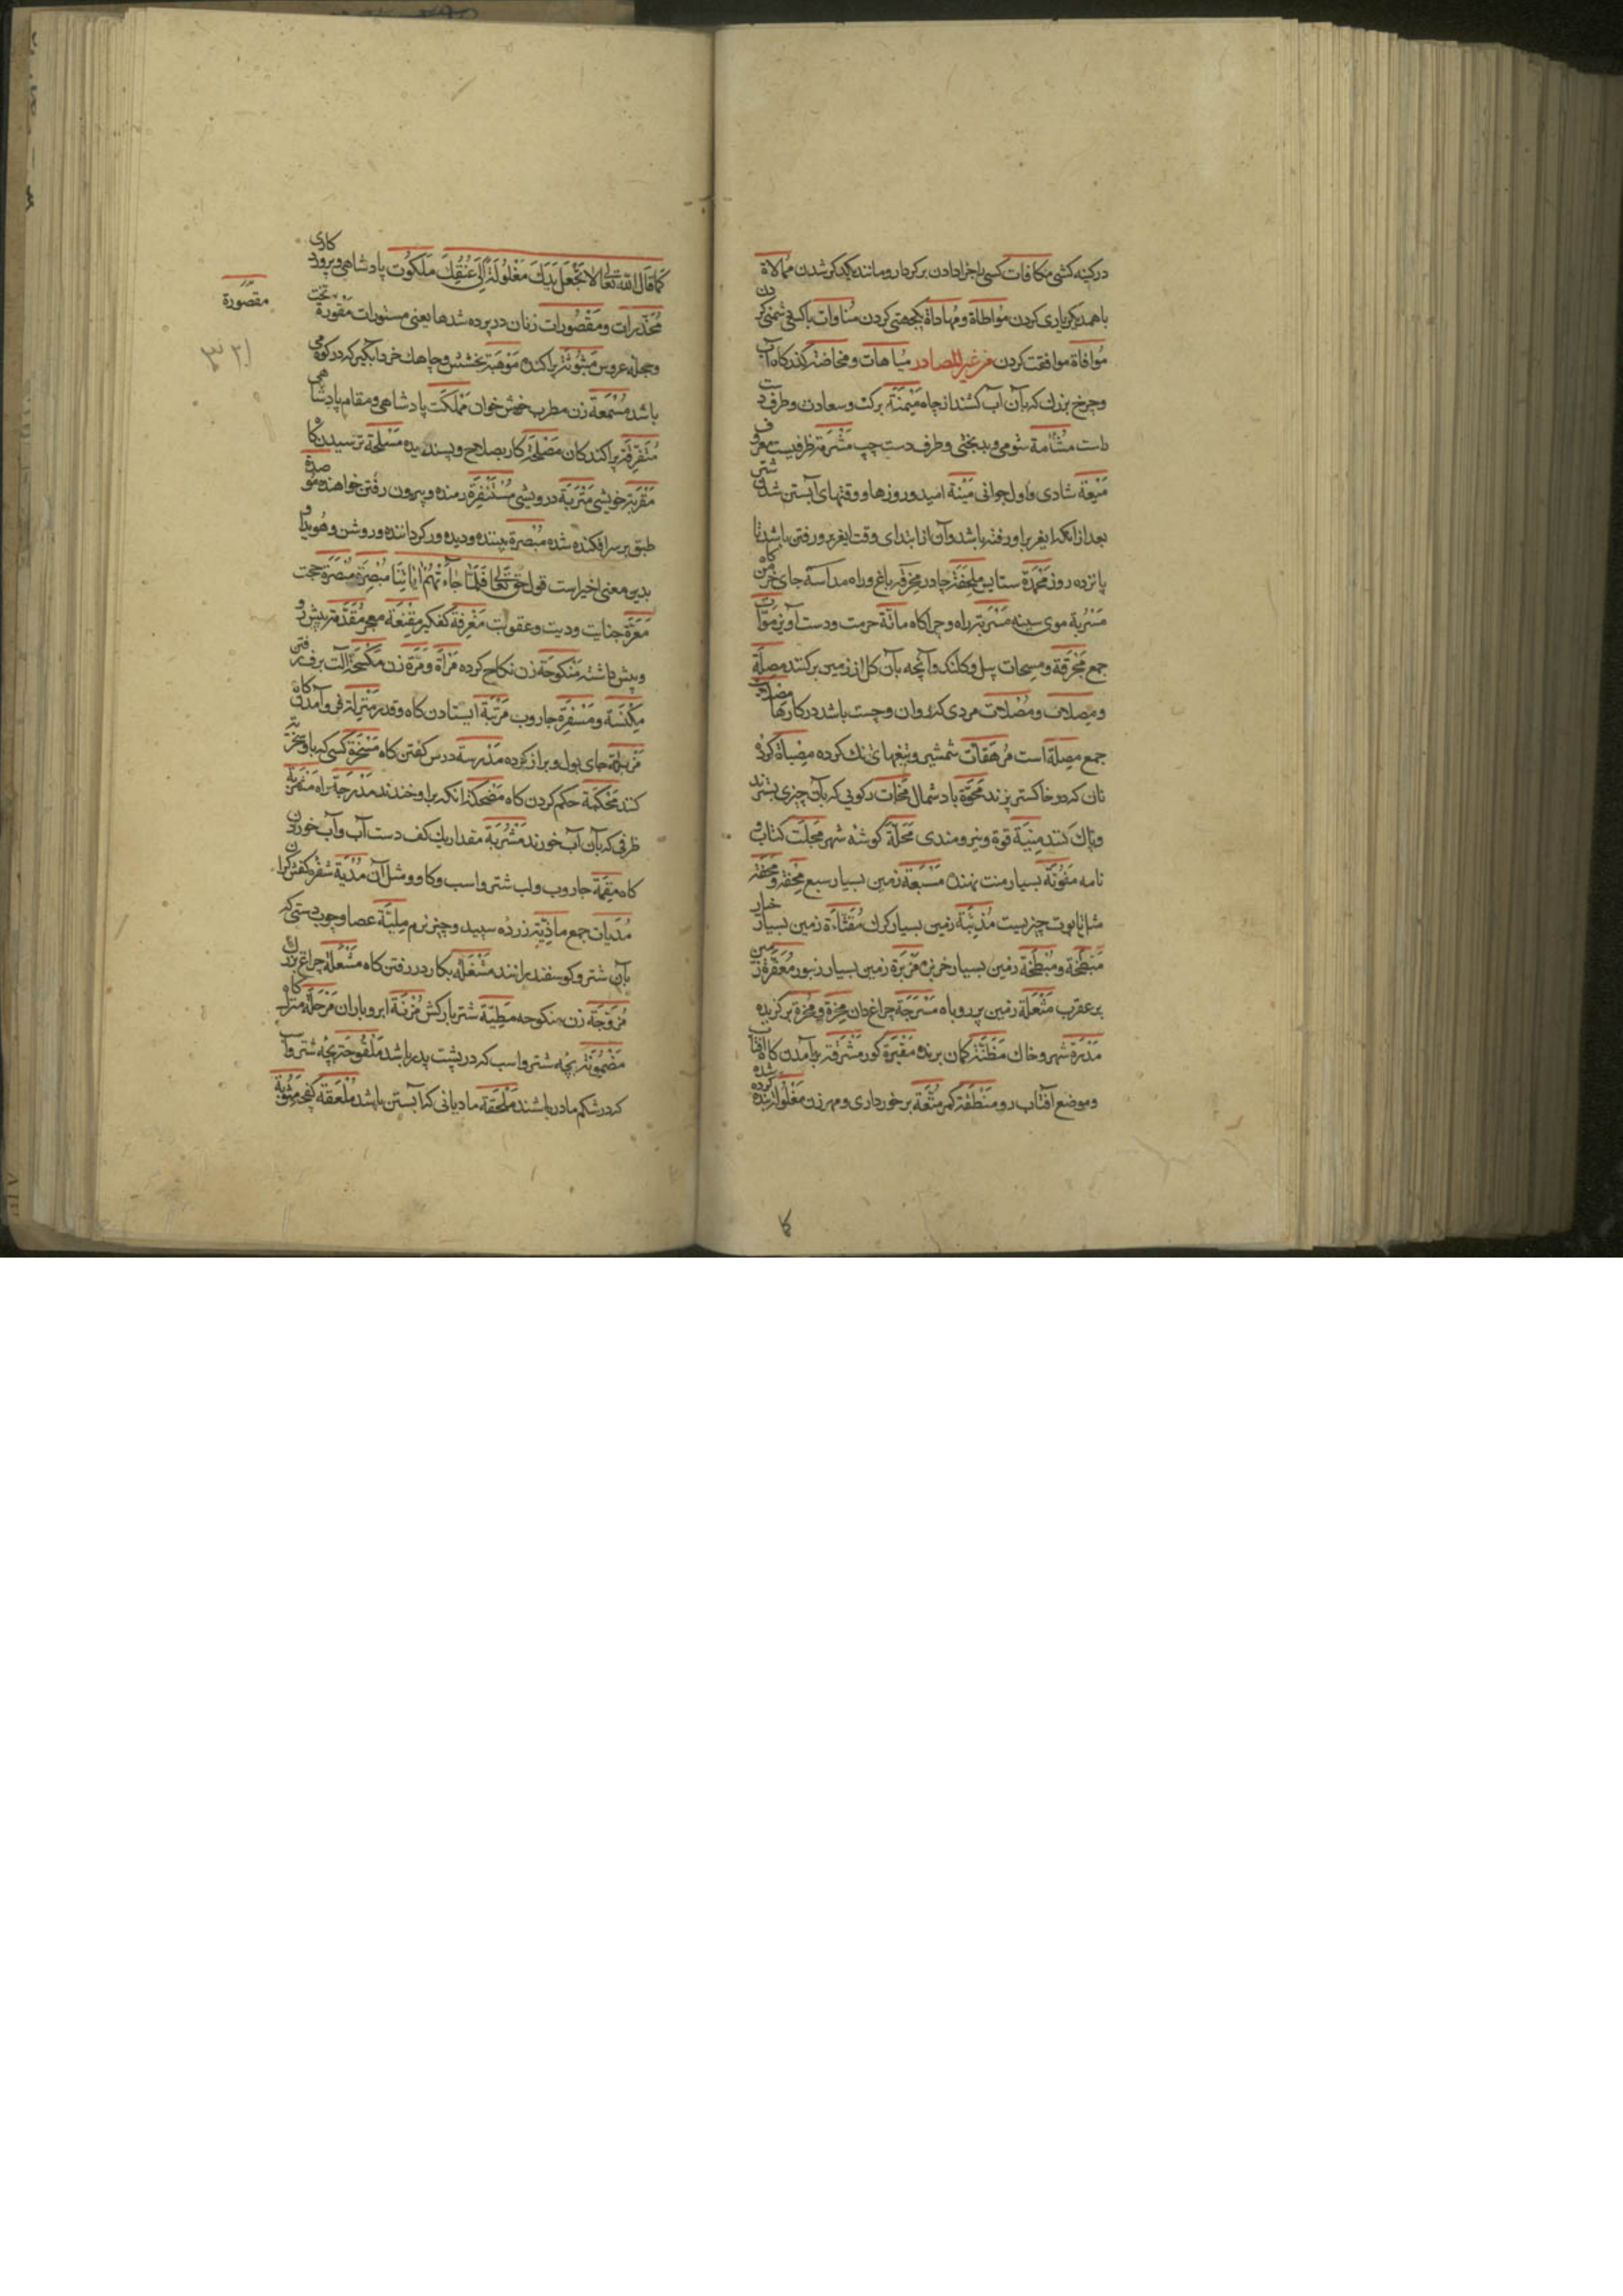 در کینه کشی مکافات کسی را جزا دادن بر کردار و مانند یکدیگر شدن ممالاة
با همدیگر یاری کردن مواطاة و مهاداة یکجهتی کردن مناوات با کسی دشمنی کردن
موافاة موافقت کردن من غیر المصادر میاهات و مخاضة گذرگاه آب
و چرخ بزرگ که بآن آب کشند از چاه میمنة برکت و سعادت و طرف دست
راست مشأمة شومی و بدبختی و طرف دست چپ مشربة ظرفیست معروف
میعة شادی و اول جوانی منیة امید و روزها و وقتهای آبستن شدن شتر
بعد از آنکه بر او رفته باشد و آن از ابتدای وقت رفتن باشد تا
پانزده روز محمدة ستایش ملحفة چادر مخرفة باغ و راه مداسة جای خرمن کاه
مسربة موی سینه مسربة راه و چراگاه ماتة حرمت و دست آویز موات
جمع مجرفة و مسحات بیل و کلنک و آنچه بآن کل از زمین برکنند مصلة
و مصلات و مصلات مردی که روان و چست باشد در کارها
جمع مصلة است مرهفات شمشیر و تیغهای تنک کرده مضباة کرده
نان که در خاکستر پزند محوة باد شمال ممحات رکوئی که بآن چیزی بسترند
و پاک کنند منة قوة و نیرومندی محلة کوشه شهر مجلت کتاب و
نامه منونة بسیار منت نهنده مسبعة زمین بسیار سبع محفة و محفة
مثل تابوت چیزیست مذئبة زمین بسیار کرک مقثاءة زمین بسیار خیار
مبطخة و مبطخة زمین بسیار خربزه مزبرة زمین بسیار زنبور معقرة زمین
پر عقرب مثعلة زمین پر روباه مسرجة چراغ دان
مدرة شهر و خاک مظنة کمان برنده مقبرة کور مشرقة برآمدن کاه آفتاب
و موضع آفتاب رو منطقة کمر متعة برخورداری و مهر زن مغلولة بنده کرده شده
کا
کما قال الله تعالی لا تجعل یدک مغلولة الی عنقک ملکوت پادشاهی و پروردکاری
مخدرات و مقصورات زنان در پرده شدها یعنی مستورات مقورة تخت
مقصورة
و حجله عروس مبثوثة پراکنده موهبة بخشش و چاهک خرد آبکیر که در کوه می
باشد مسمعة زن مطرب خوش خوان مملکت پادشاهی و مقام پادشاهی
متفرقة پراکندکان مصلحة کار بصلاح و پسندیده مسلحة ترسیدن کاه
مقربة خویشی متربة درویشی مستنفرة رمنده و بیرون رفتن خواهنده موصدة
طبق بر سر افکنده شده مبصرة بیننده و دیده ور کرداننده و روشن و هویدا و
بدین معنی اخیر است قول حق تعالی فلما جاءتهم آیاتنا مبصرة مبصرة حجت
معرة جنایت و دیت و عقوبت مغرفة کفکیر مقنعة معجر مقدمة پیش رو
و پیش داشته منکوحة زن نکاح کرده مرأة و مرة زن مکسحة آلت برف رفتن
مکنسة و مسفرة جاروب مرتبة ایستادن کاه و قدر منزلة فرو آمدن کاه
مزبلة جای بول و براز کرده مدرسة درس کفتن کاه مسخرة کسی که باو سخریه
کنند محکمة حکم کردن کاه مضحکة آنکه براو خندند مدرجة راه
ظرفی که بآن آب خورند مشربة مقدار یک کف دست آب و آب خوردن
کاه مقمة جاروب و لب شتر و اسب و کاو و مثل آن مدیة شفره کفش کران
مدیات جمع ماذیة زره سپید و چیز نرم عصا و چوب دستی که
بآن شتر و کوسفند برانند مشغلة بکار در رفتن کاه مشعلة چراغ بزرک
مزوجة زن منکوحه مطیة شتر بارکش مزنة ابر و باران مرحلة منزل کاه
مضمونة بچه شتر و اسب که در پشت پدر باشد ملقوحة بچه شتر و اسب
که در شکم مادر باشند ملحقة مادیانی که آبستن باشد ملعقة کفچه مثوبة